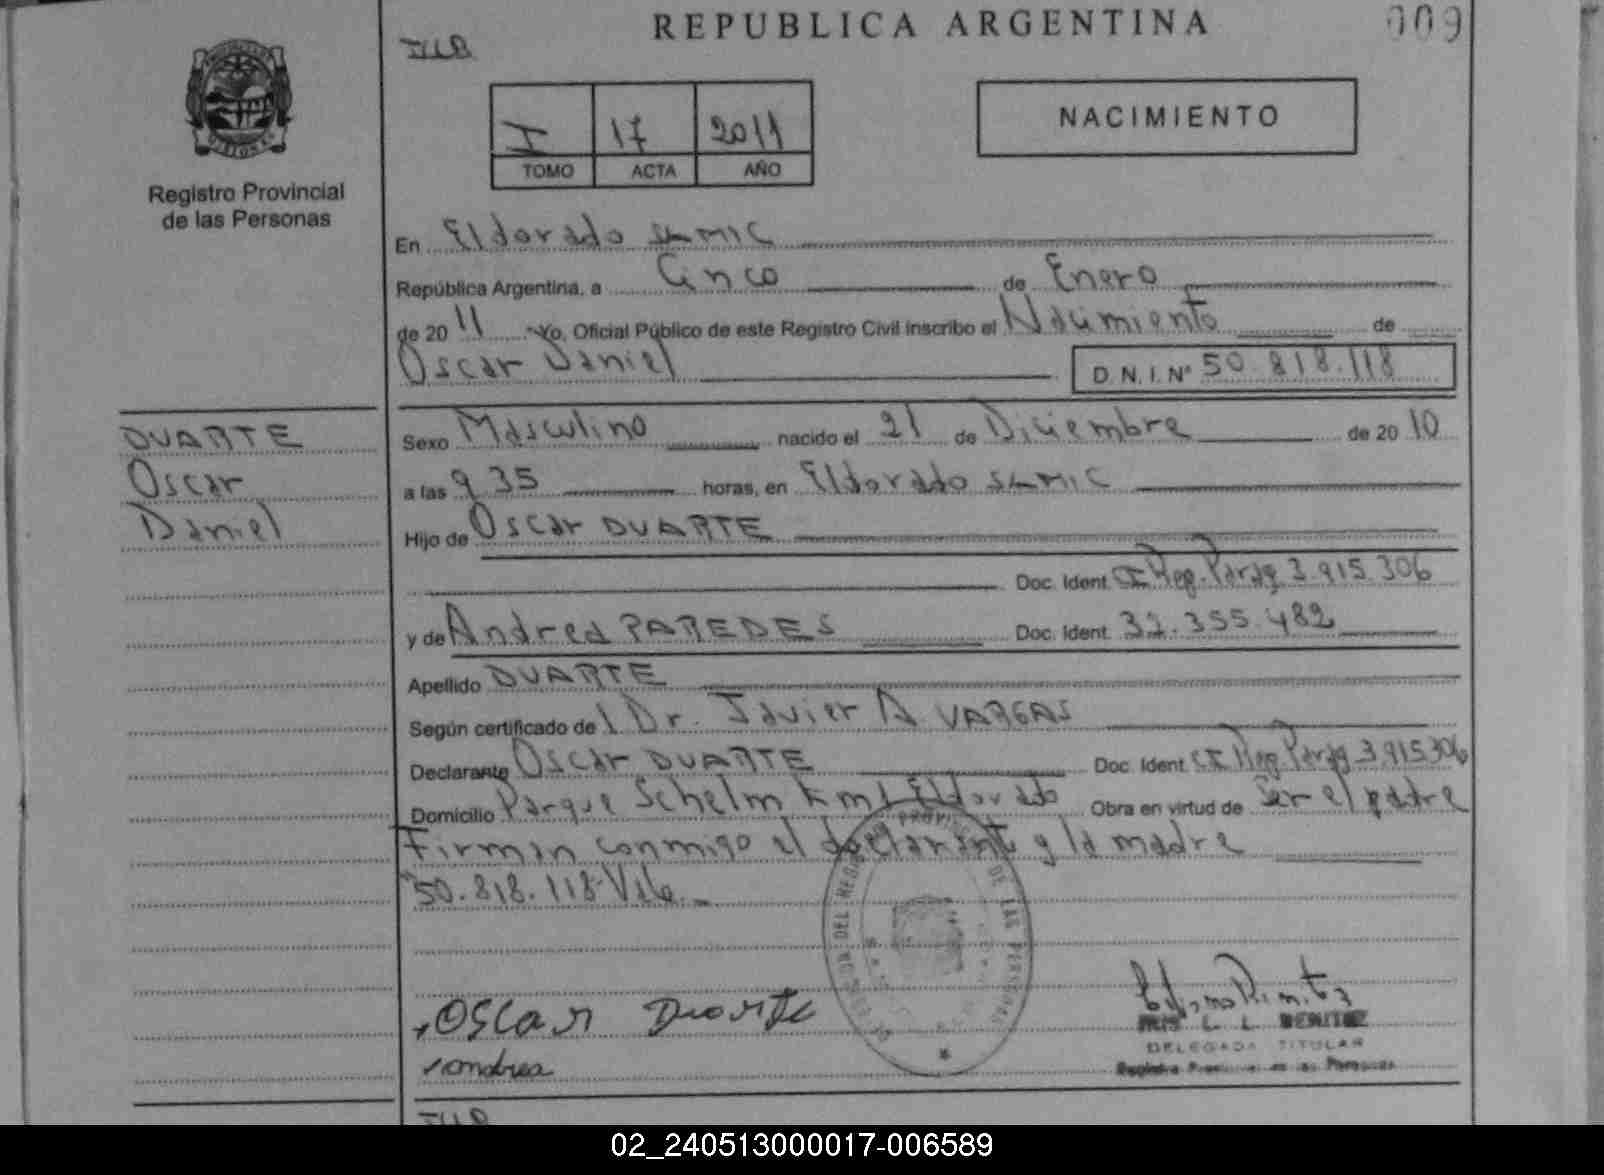 REPUBLICA ARGENTINA
009
I 17 2011
TOMO ACTA AÑO
NACIMIENTO
Registro Provincial
de las Personas
En Eldorado SAMIC
República Argentina, a Cinco de Enero
de 2011 Yo, Oficial Público de este Registro Civil inscribo el Nacimiento de
Oscar Daniel D.N.I.Nº 50.818.118
DUARTE
Oscar
Daniel
Sexo Masculino nacido el 21 de Diciembre de 2010
a las 9 35 horas, en Eldorado SAMIC
Hijo de Oscar DUARTE
Doc. Ident. CI Rep. Parag 3.915.306
y de Andrea PAREDES Doc. Ident. 32.355.482
Apellido DUARTE
Según certificado del Dr. Javier A VARGAS
Declarante Oscar DUARTE Doc. Ident. CI Rep. Parag 3.915306
Domicilio Parque Schelm km 1 Eldorado Obra en virtud de Ser el padre
Firman conmigo el declarante y la madre
50.818.118 Vale
Oscar Duarte
Andrea
L. L. BENITEZ
DELEGADA TITULAR
02_240513000017-006589